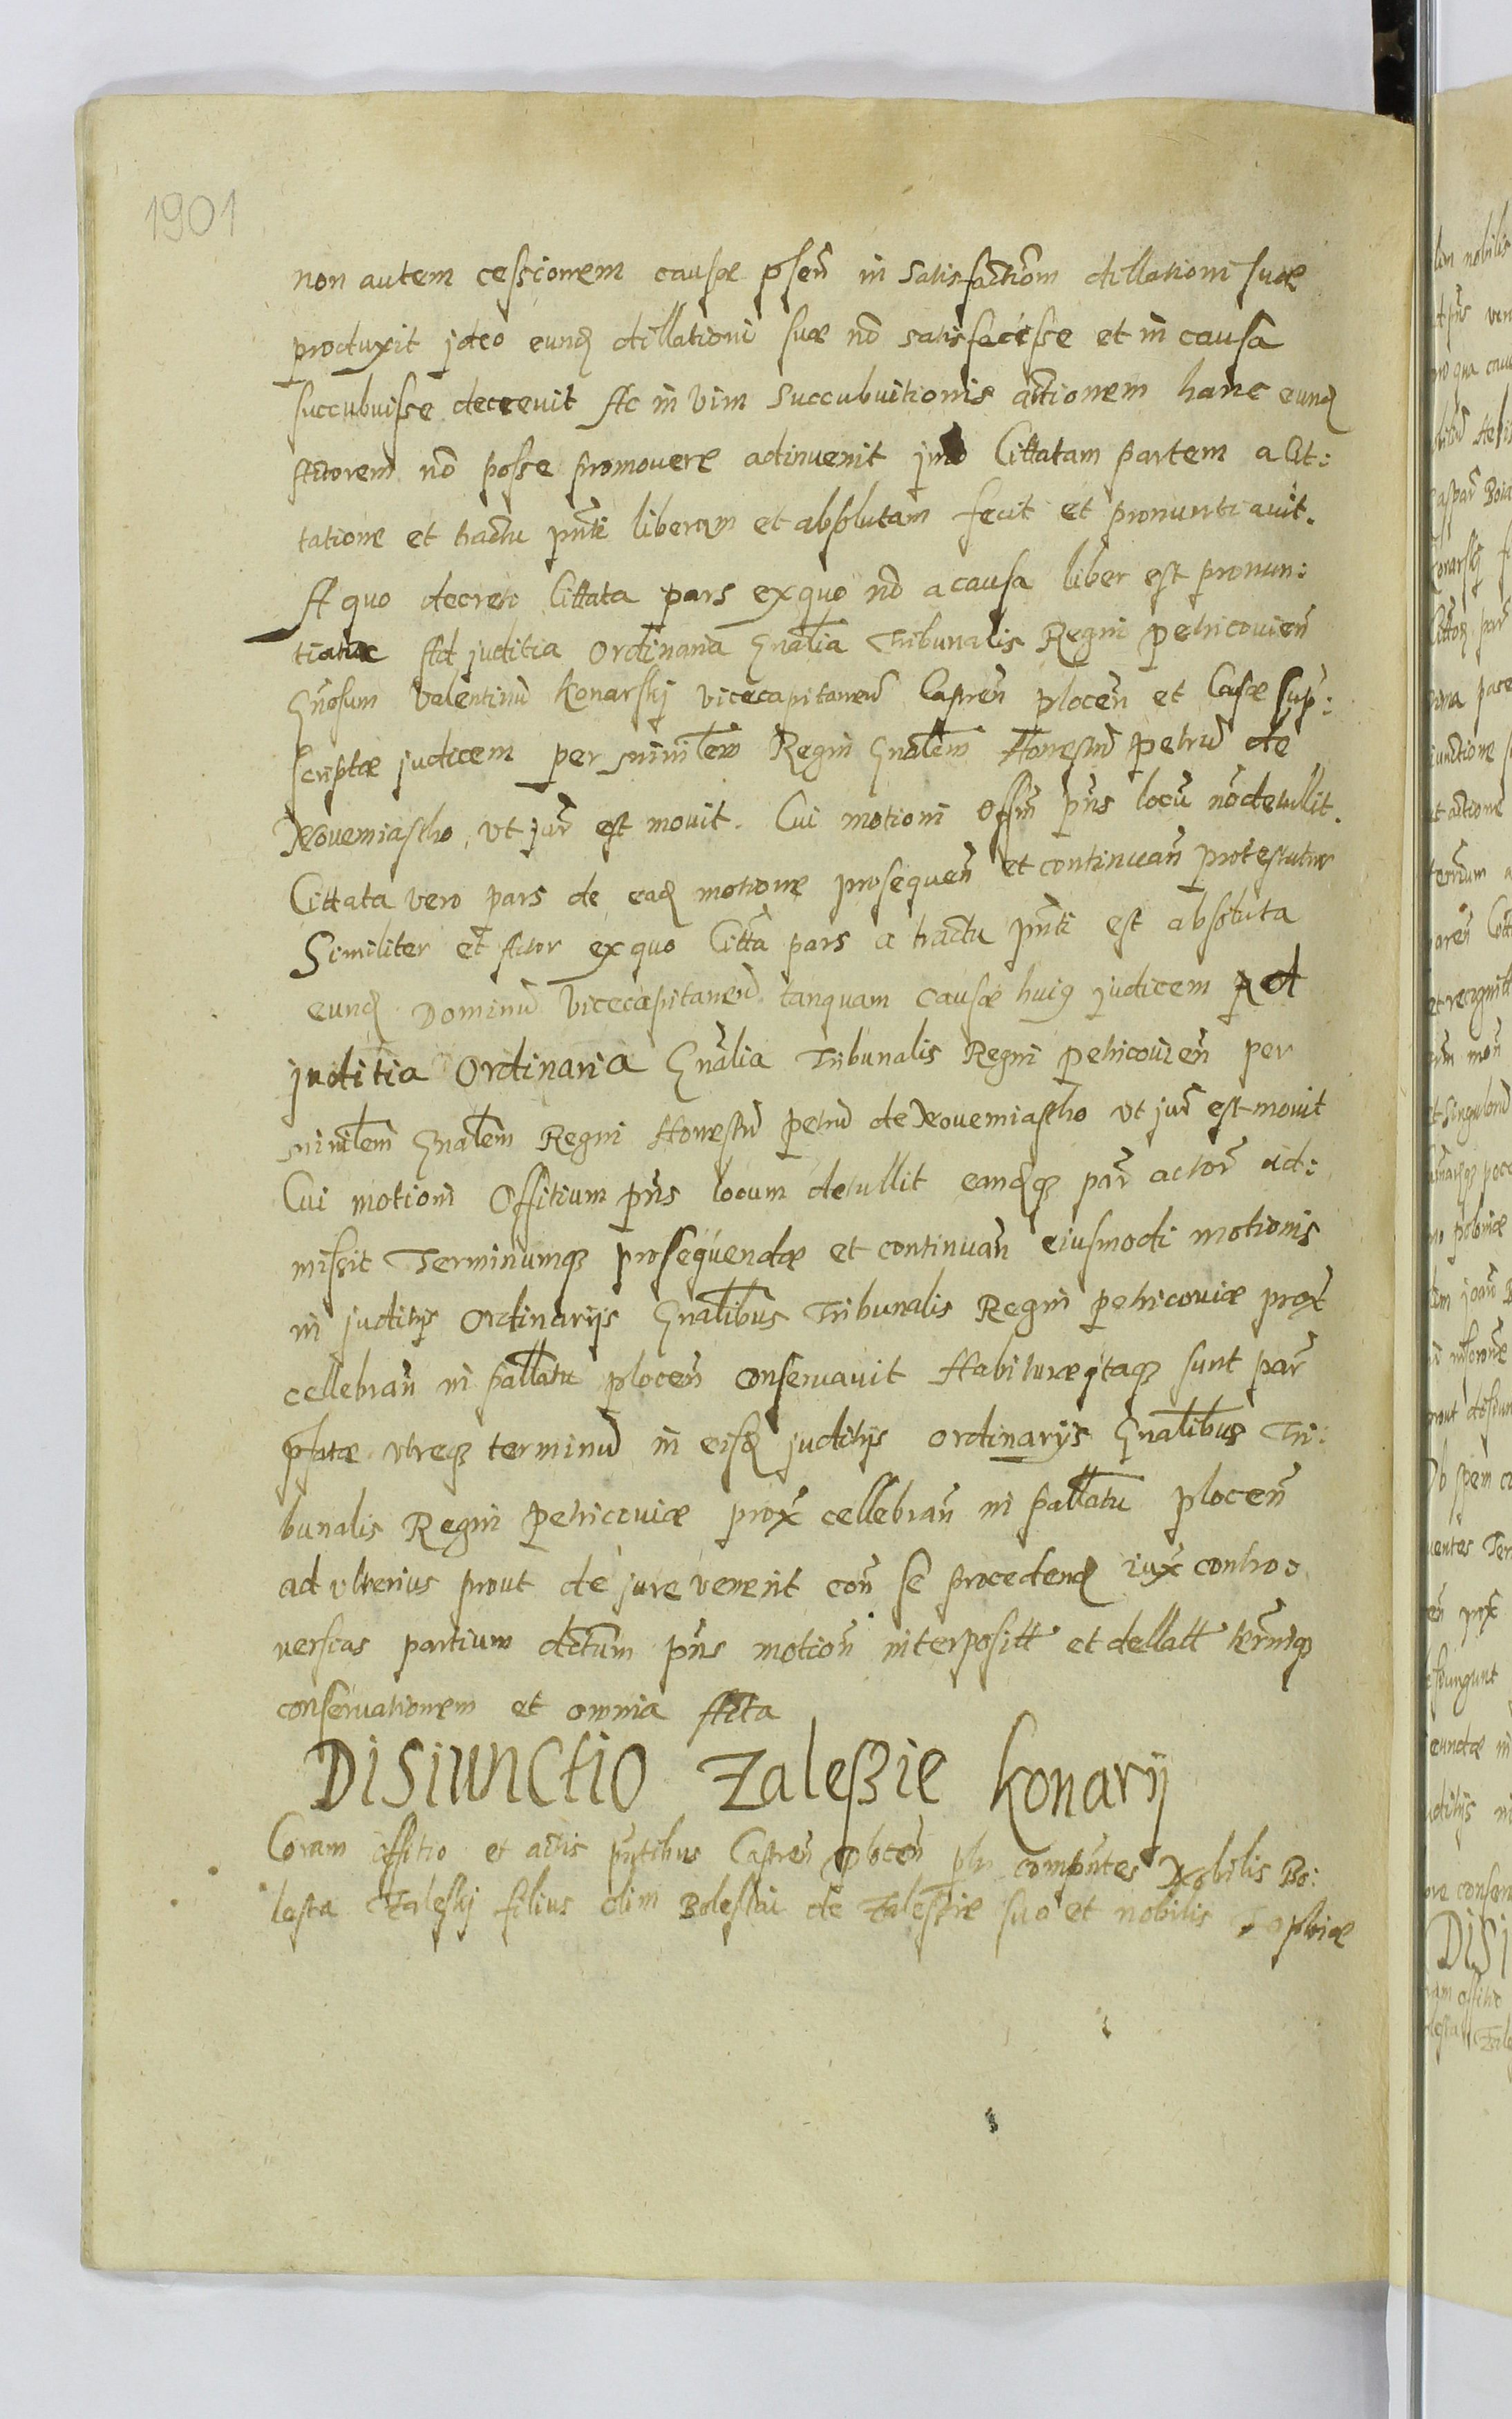 1901
non autem cessionem causæ pñsen̄ in satisfactiōm dillationi suæ
produxit jdeo eund dillationi suæ nō satisfacisse et in causa
succubuisse decreuit Ac in vim succubuitionis actionem hanc eund
Actorem nō posse promouere adinvenit jmo Cittatam partem a Cit:
tatione et tractu pñti liberam et absolutam fecit et pronuntiauit.
A quo decreto Cittata pars ex quo nō a causa liber est pronun:
tiatus Ad juditia Ordinaria Gnālia Tribunalis Regni petricovien̄
Gnōsum Valentinū Konarskj vicecapitaneū Castren̄ plocen̄ et Causæ sup:
scriptæ judicem per ministēm Regni Gnālem Honestū petrū de
Nouemiastho, vt jur̄ est mouit. Cui motioni Offm̄ pñs locū nō detullit.
Cittata vero pars de ead motione prosequen̄ et continuan̄ protestatur
Similiter et Actor ex quo Citt̄a pars a tractu pñti est absoluta
eund Dominū Vicecapitaneū tanquam causæ huig judicem Ad
juditia Ordinaria Gnālia Tribunalis Regni petricovien̄ per
ministēm Gnālem Regni Honestū petrū de Nouemiastho vt jur̄ est mouit
Cui motioni Offitium pñs locum detullit eandq par̄ actor̄ ad:
missit Terminumq prosequendæ et continuan̄ eiusmodi motionis
in juditijs Ordinarijs Gnālibus Tribunalis Regni petricouiæ prox̄
cellebran̄ in pallatu plocen̄ conseruauit Habituræ jtaq sunt par̄
pfatæ vtreq terminū in eisd juditijs ordinarijs Gnālibus Tri:
bunalis Regni petricouiæ prox̄ cellebran̄ in pallatu plocen̄
ad vlterius prout de jure venerit con̄ se procedend iux̄ contro
versias partium dctūm pñs motion̄ interpositt et dellatt ter̄miq
conseruationem et omnia Acta
Disiunctio Zalesßie Konarij
Coram offitio et actis pñtibus Castren̄ plocen̄ plr compntes Nobilis Bo:
lesta Zaleskj filius olim Bolestai de Zalesßie suo et nobilis Sophiæ